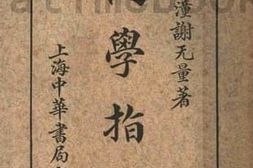 潼謝无量著
學指
上海中華書局